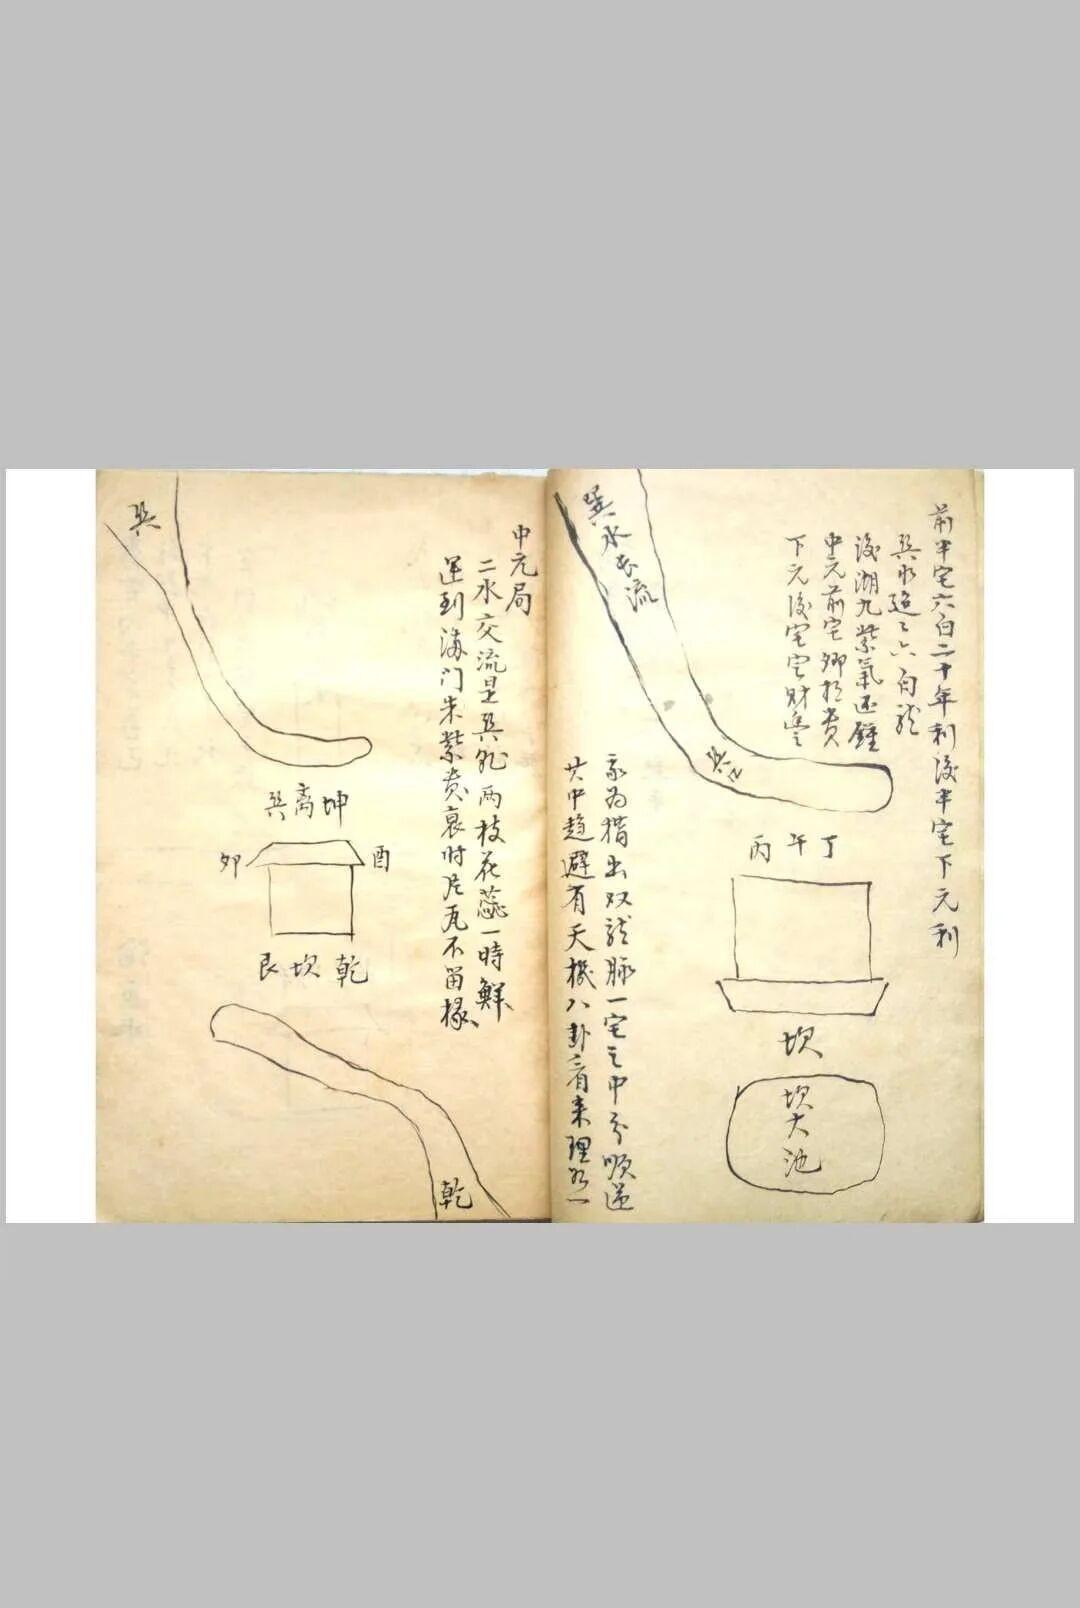 前半宅六白二十年利後半宅下元利
巽水迢々六白龍
後湖九紫氣還鍾
中元前宅卿相貴
下元後宅定財豐
巽水長流
巽巳
丙午丁
坎
坎大池
我为猎出双龍脉一宅之中分順逆
其中趨避有天機八卦看来理不一
中元局
二水交流是巽乾两枝花蕊一時鮮
運到海门朱紫贵衰时片瓦不留椽
巽
巽離坤
卯
酉
艮坎乾
乾